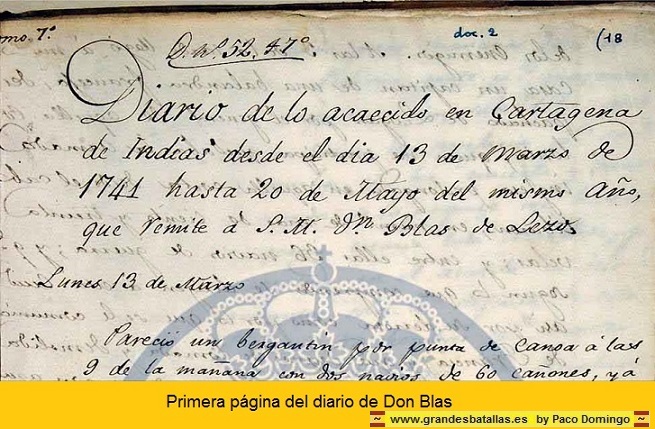 omo. 7.º
D. Nº. 52. t. 7º
doc. 2
(18
Diario de lo acaecido en Cartagena
de Indias desde el dia 13 de Marzo de
1741 hasta 20 de Mayo del mismo año,
que remite a S. M. Dn Blas de Lezo.
Lunes 13 de Marzo
Pareció un bergantin por punta de canoa á las
9 de la mañana con dos navios de 60 cañones, y á
Primera página del diario de Don Blas
www.grandesbatallas.es by Paco Domingo